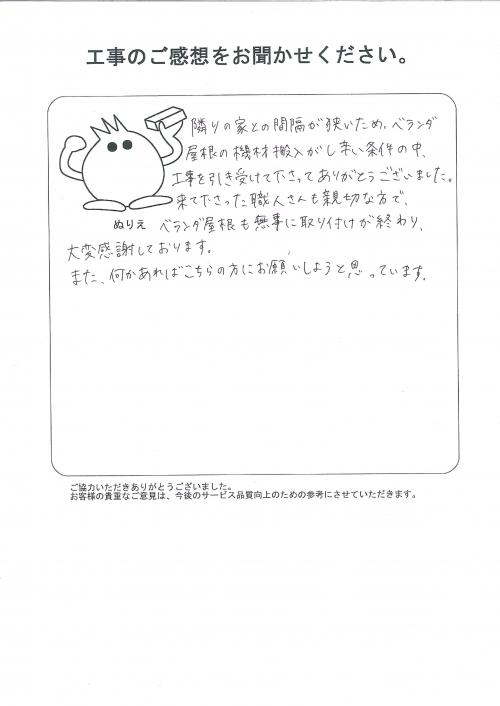 工事のご感想をお聞かせください。
隣りの家との間隔が狭いため、ベランダ
屋根の機材搬入がし辛い条件の中、
工事を引き受けて下さってありがとうございました。
来て下さった職人さんも親切な方で、
ぬりえ ベランダ屋根も無事に取り付けが終わり、
大変感謝しております。
また、何かあればこちらの方にお願いしようと思っています。
ご協力いただきありがとうございました。
お客様の貴重なご意見は、今後のサービス品質向上のための参考にさせていただきます。